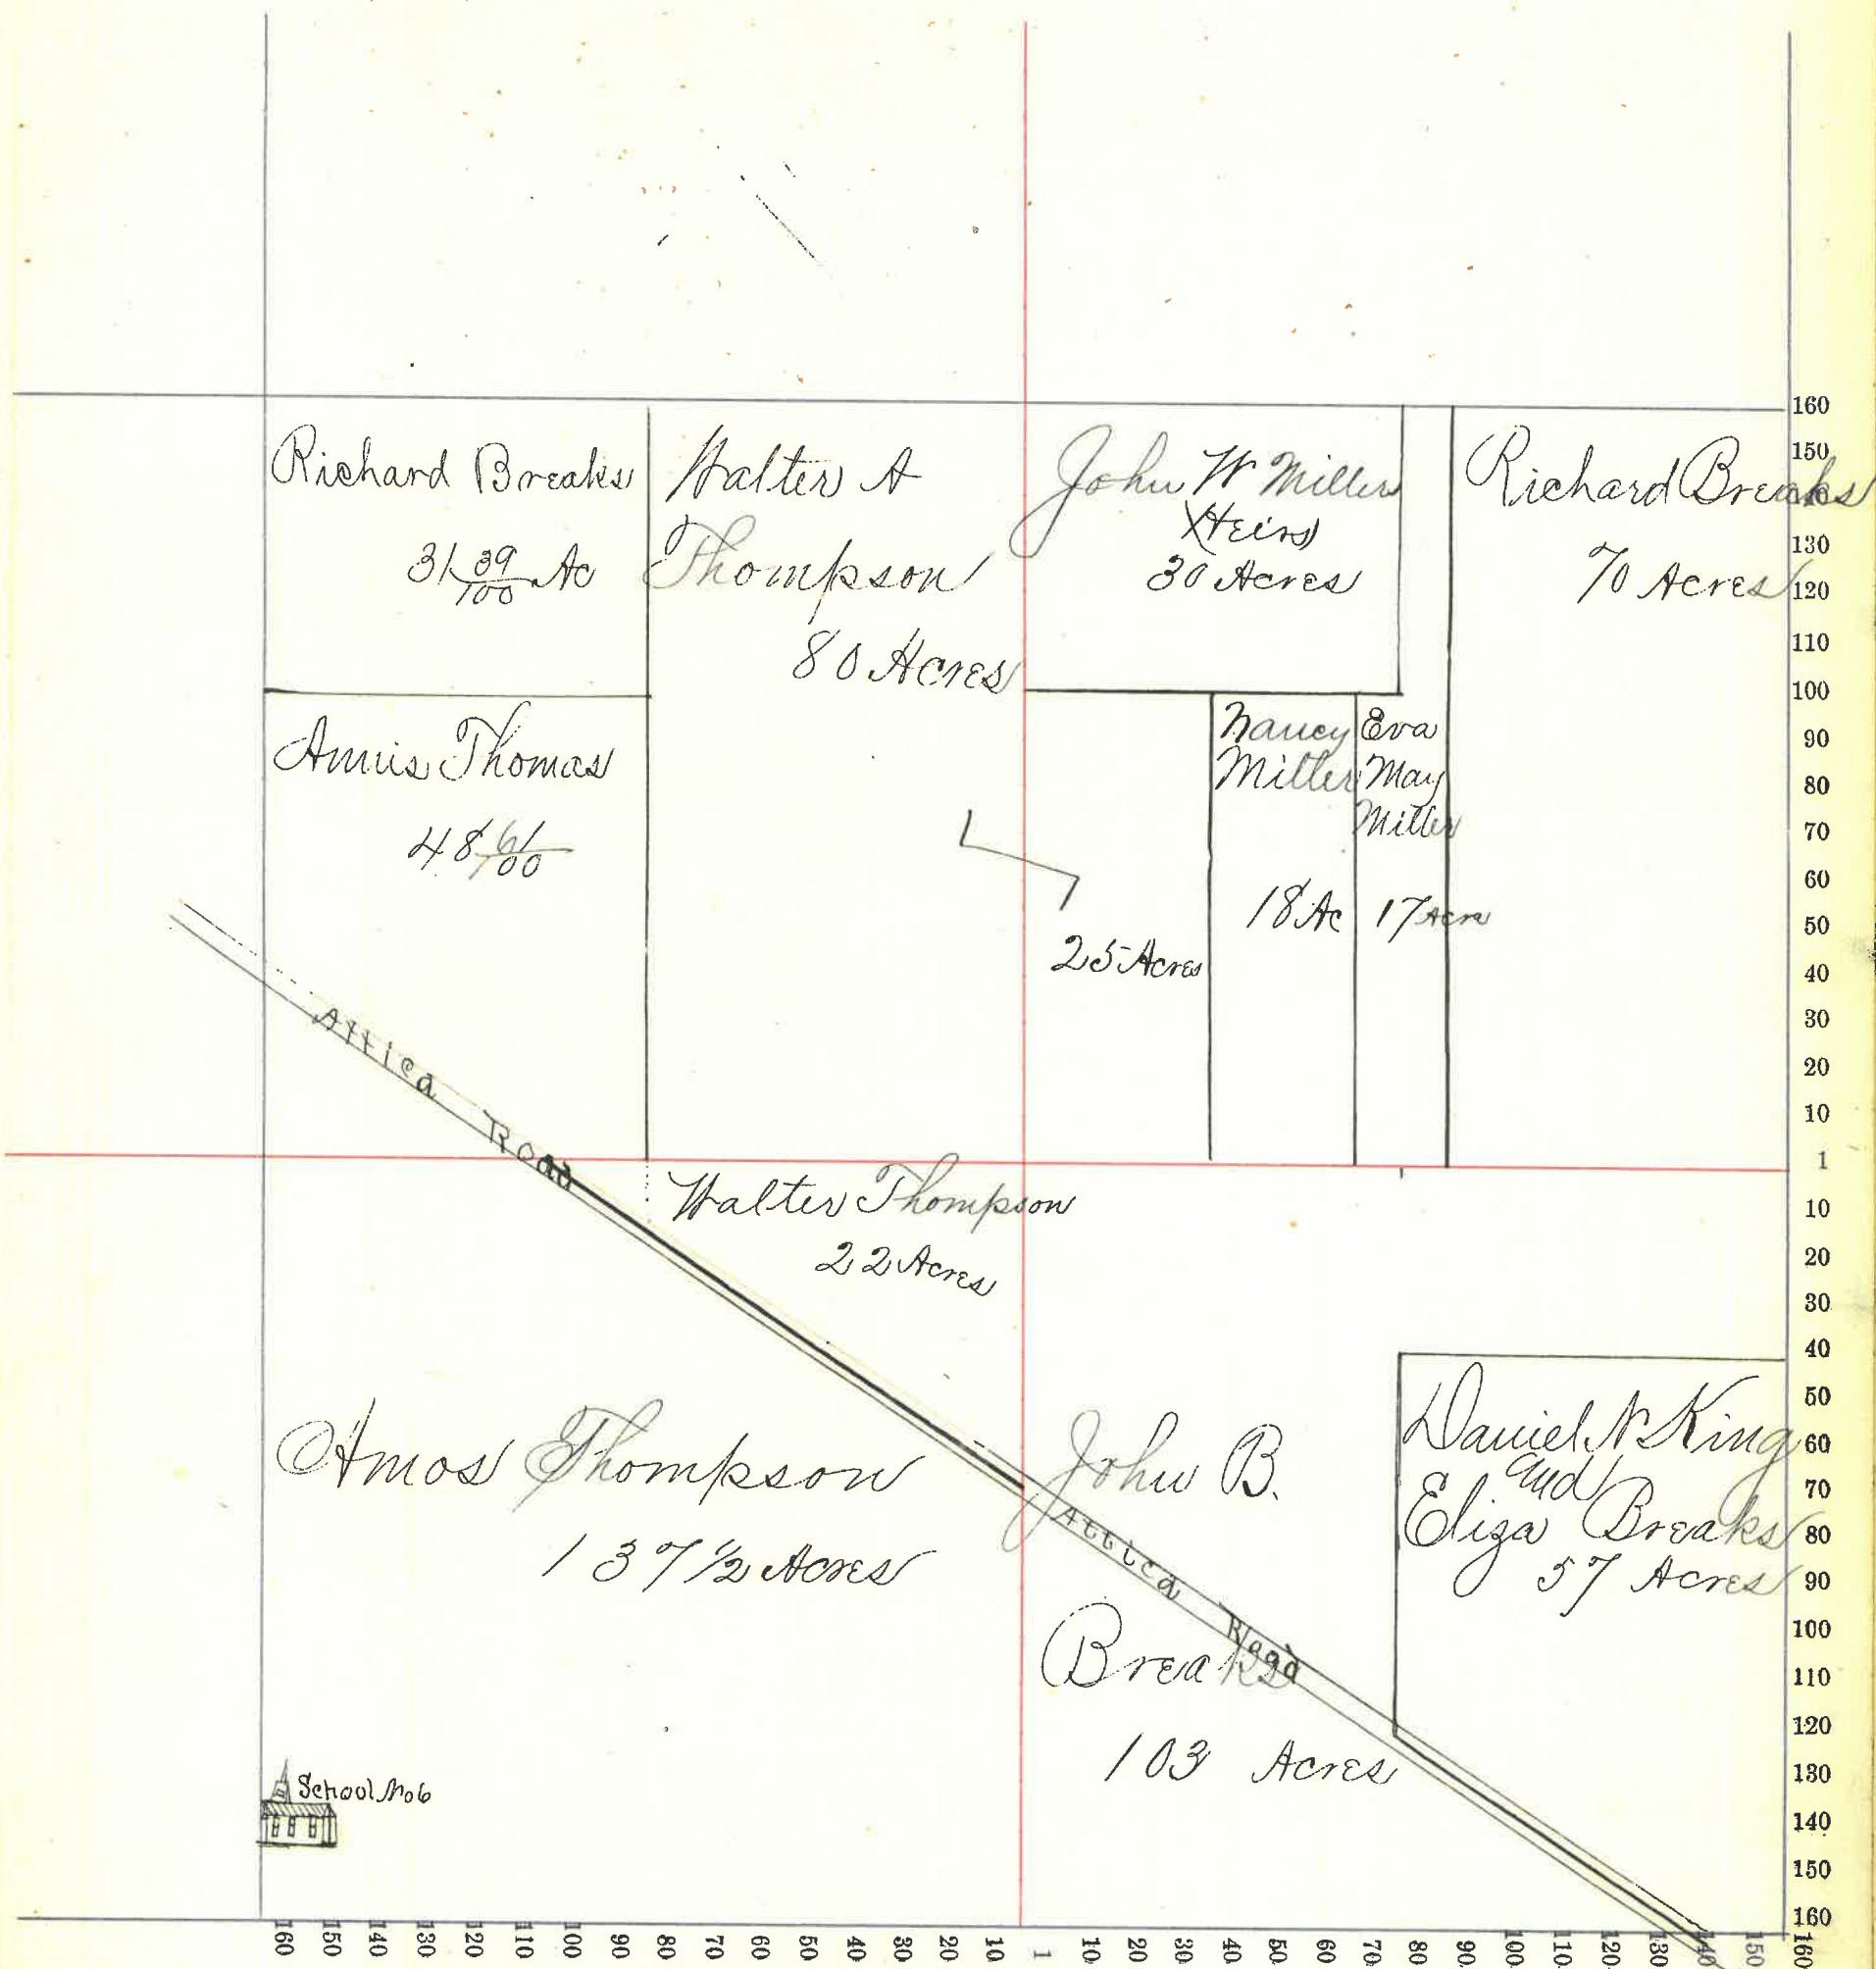 Richard Breaks
31 39/100 Ac
Walter A
Thompson
80 Acres
John W Miller
(Heirs)
30 Acres
Richard Breaks
70 Acres
Annis Thomas
48 61/100
25 Acres
Nancy
Miller
18 Ac
Eva
May
Miller
17 Acre
Attica Road
Walter Thompson
22 Acres
Amos Thompson
137 1/2 Acres
John B.
Breaks
103 Acres
Attica Road
Daniel N King
and
Eliza Breaks
57 Acres
School No 6
160
150
130
120
110
100
90
80
70
60
50
40
30
20
10
1
10
20
30
40
50
60
70
80
90
100
110
120
130
140
150
160
160 150 140 130 120 110 100 90 80 70 60 50 40 30 20 10 1 10 20 30 40 50 60 70 80 90 100 110 120 130 140 150 160